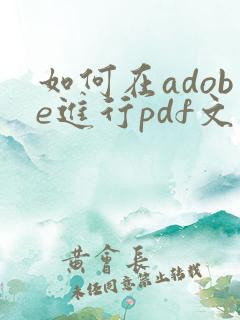 如何在adob
e進行pdf文
黄會長
未经同意禁止转载